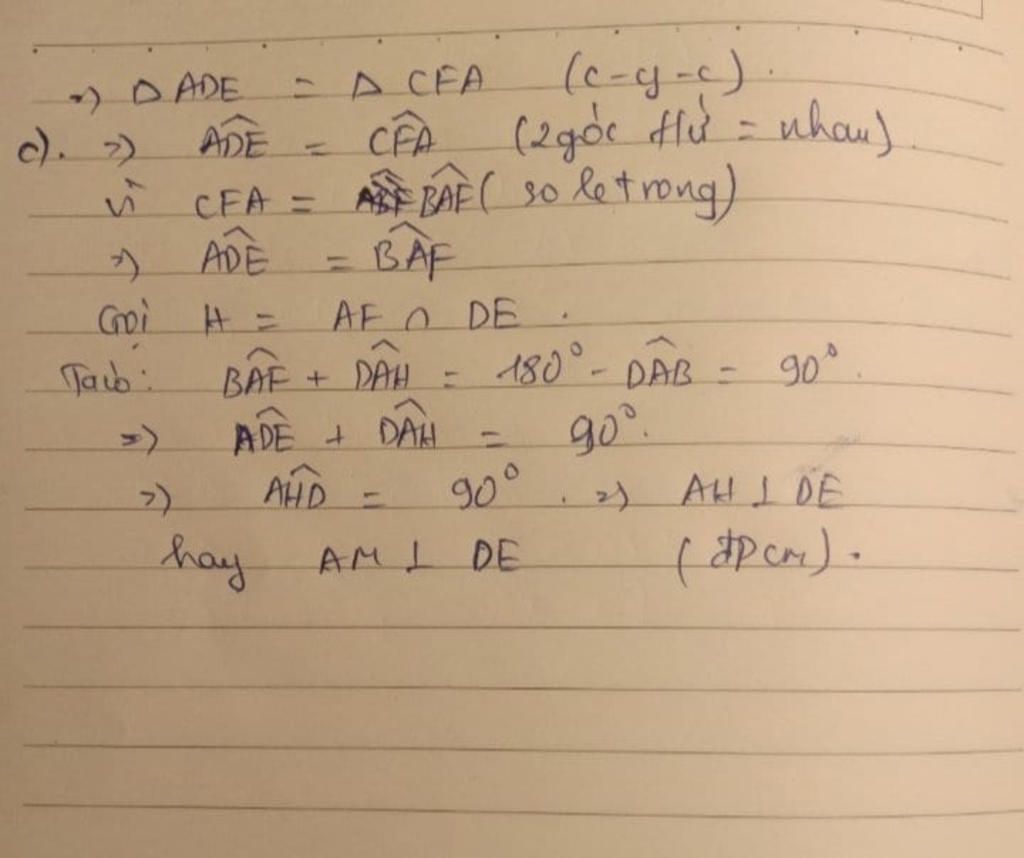 =) Δ ADE = Δ CFA (c-g-c).
c). =) ADE^ = CFA^ (2 góc t/ứ = nhau)
vì CFA = BAF^ (so le trong)
=) ADE^ = BAF^
Gọi H = AF ∩ DE.
Ta có: BAF^ + DAH^ = 180° - DAB^ = 90°.
=) ADE^ + DAH^ = 90°.
=) AHD^ = 90°. =) AH ⊥ DE
hay AM ⊥ DE (đpcm).